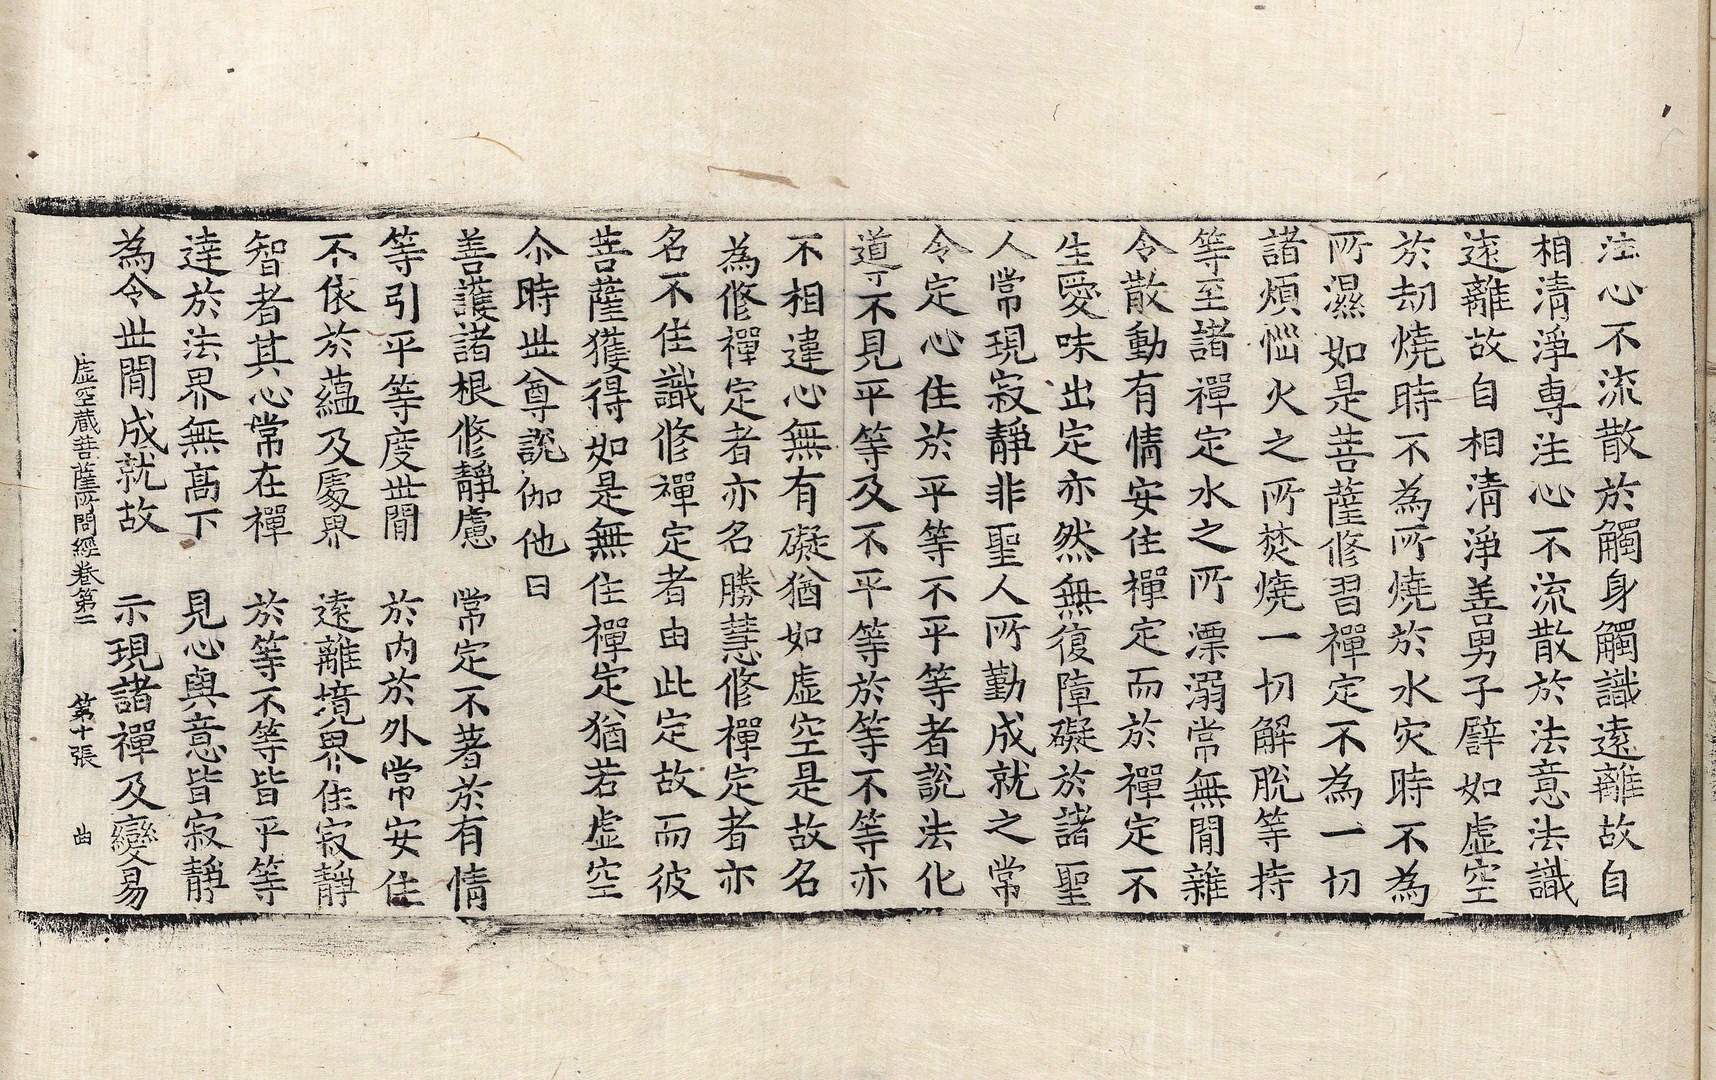 注心不流散於觸身觸識遠離故自
相清淨專注心不流散於法意法識
遠離故自相清淨善男子譬如虛空
於劫燒時不為所燒於水灾時不為
所濕如是菩薩修習禪定不為一切
諸煩惱火之所焚燒一切解脫等持
等至諸禪定水之所漂溺常無間雜
令散動有情安住禪定而於禪定不
生愛味出定亦然無復障礙於諸聖
人常現寂靜非聖人所勤成就之常
令定心住於平等不平等者說法化
導不見平等及不平等於等不等亦
不相違心無有礙猶如虛空是故名
為修禪定者亦名勝慧修禪定者亦
名不住識修禪定者由此定故而彼
菩薩獲得如是無住禪定猶若虛空
尒時世尊說伽他曰
善護諸根修靜慮　常定不著於有情
等引平等度世間　於內於外常安住
不依於蘊及處界　遠離境界住寂靜
智者其心常在禪　於等不等皆平等
達於法界無高下　見心與意皆寂靜
為令世間成就故　示現諸禪及變易
虛空藏菩薩所問經卷第二　第十張　曲